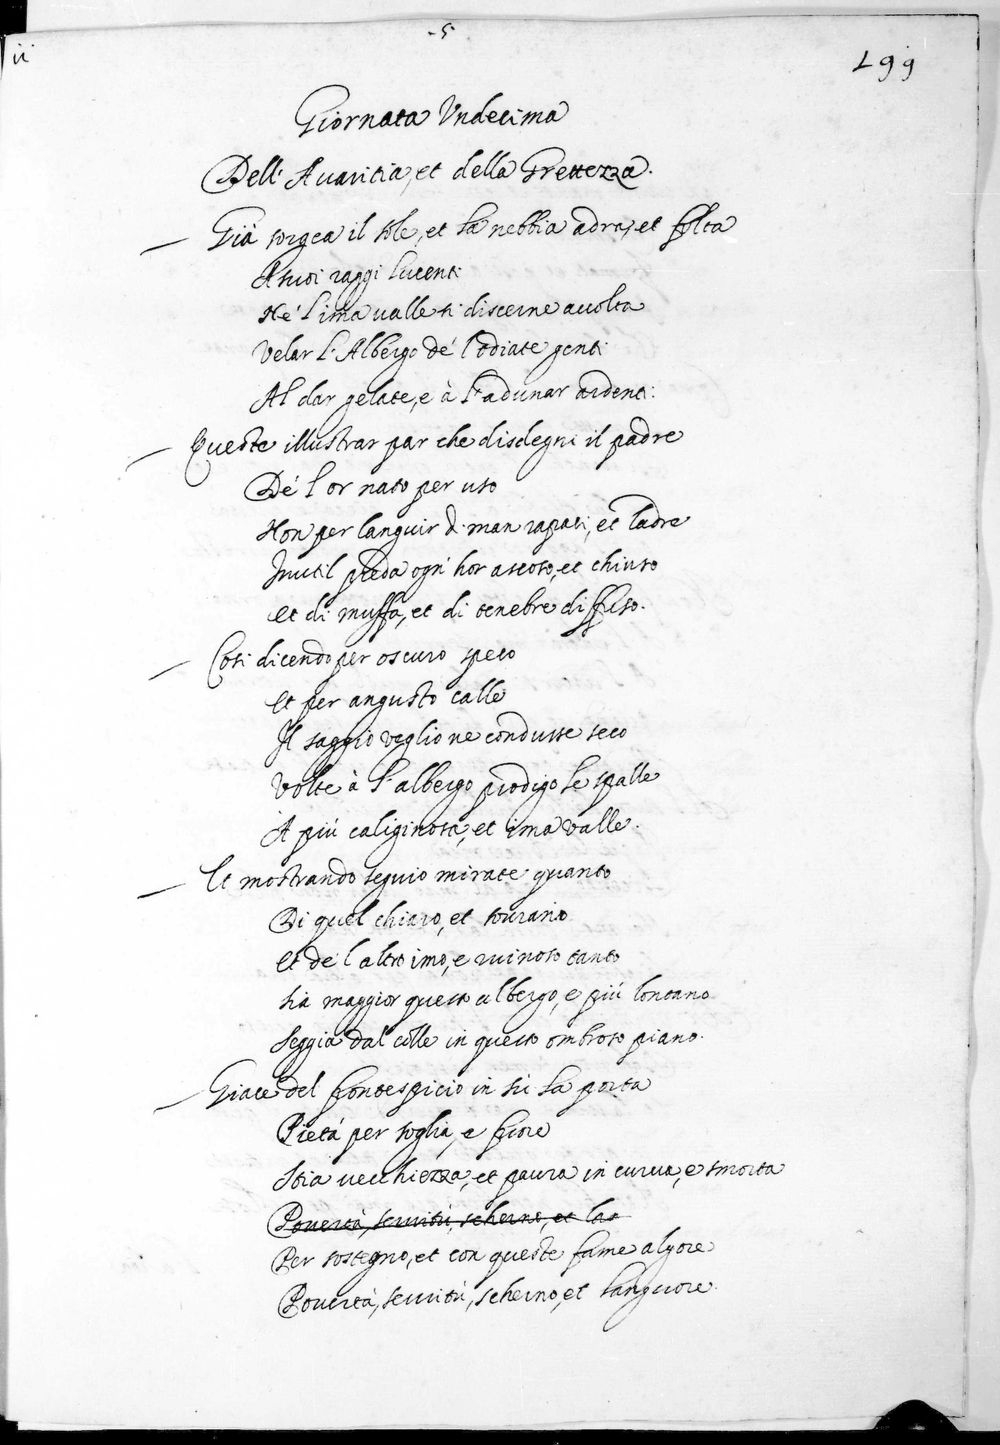 -5-
199
Giornata Vndecima
Dell' Auaritia, et della Grettezza.
Già sorgea il sole, et la nebbia adra, et folta
A suoi raggi lucenti
Né l'ima ualle si discerne auolta
Velar l'Albergo dé l'odiate genti
Al dar gelate, e à l'adunar ardenti:
Queste illustrar par che disdegni il padre
Dé l'or nato per uso
Non per languir di man rapaci, et ladre
Inutil preda ogn' hor ascoso, et chiuso
et di muffa, et di tenebre diffuso.
Cosi dicendo per oscuro speco
et per angusto calle
Il saggio ueglio ne condusse seco
Volte à l'albergo prodigo le spalle
A più caliginosa, et ima valle.
et mostrando seguio mirate quanto
Di quel chiaro, et sourano
et de l'altro imo, e ruinoso tanto
sia maggior questo albergo, e più lontano
seggia dal colle in questo ombroso piano.
Giace del frontespicio in sù la porta
Pietà per soglia, e fiore
stia uecchiezza, et paura in curua, e smorta
Pouertà, seruitù, scherno, et la
Per sostegno, et con queste fame algore
Pouertà, seruitù, scherno, et languore.